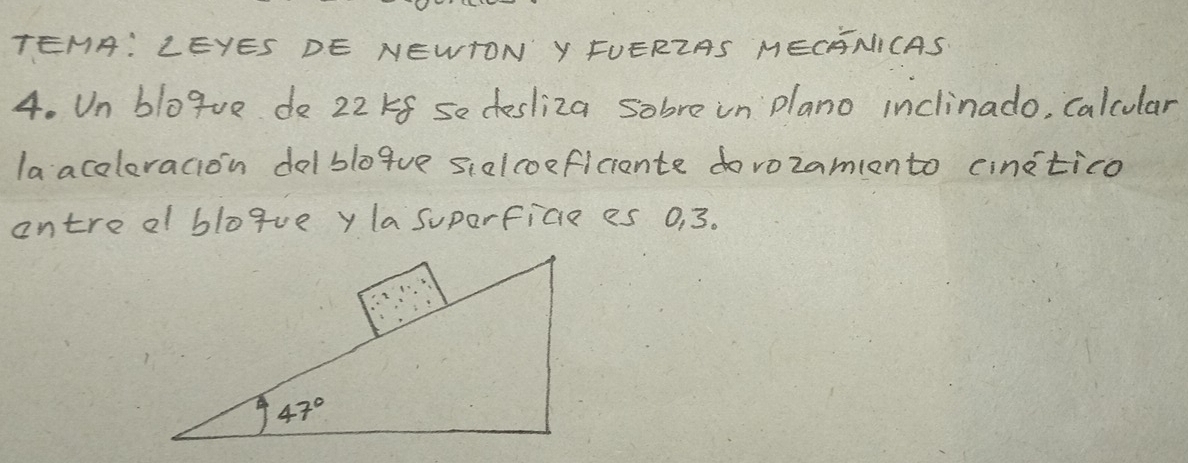 TEMA: LEYES DE NEWTON Y FUERZAS MECÁNICAS
4. Un bloque de 22 kg se desliza sobre un plano inclinado. calcular
la aceleración del bloque si el coeficiente de rozamiento cinético
entre el bloque y la superficie es 0,3.
47°